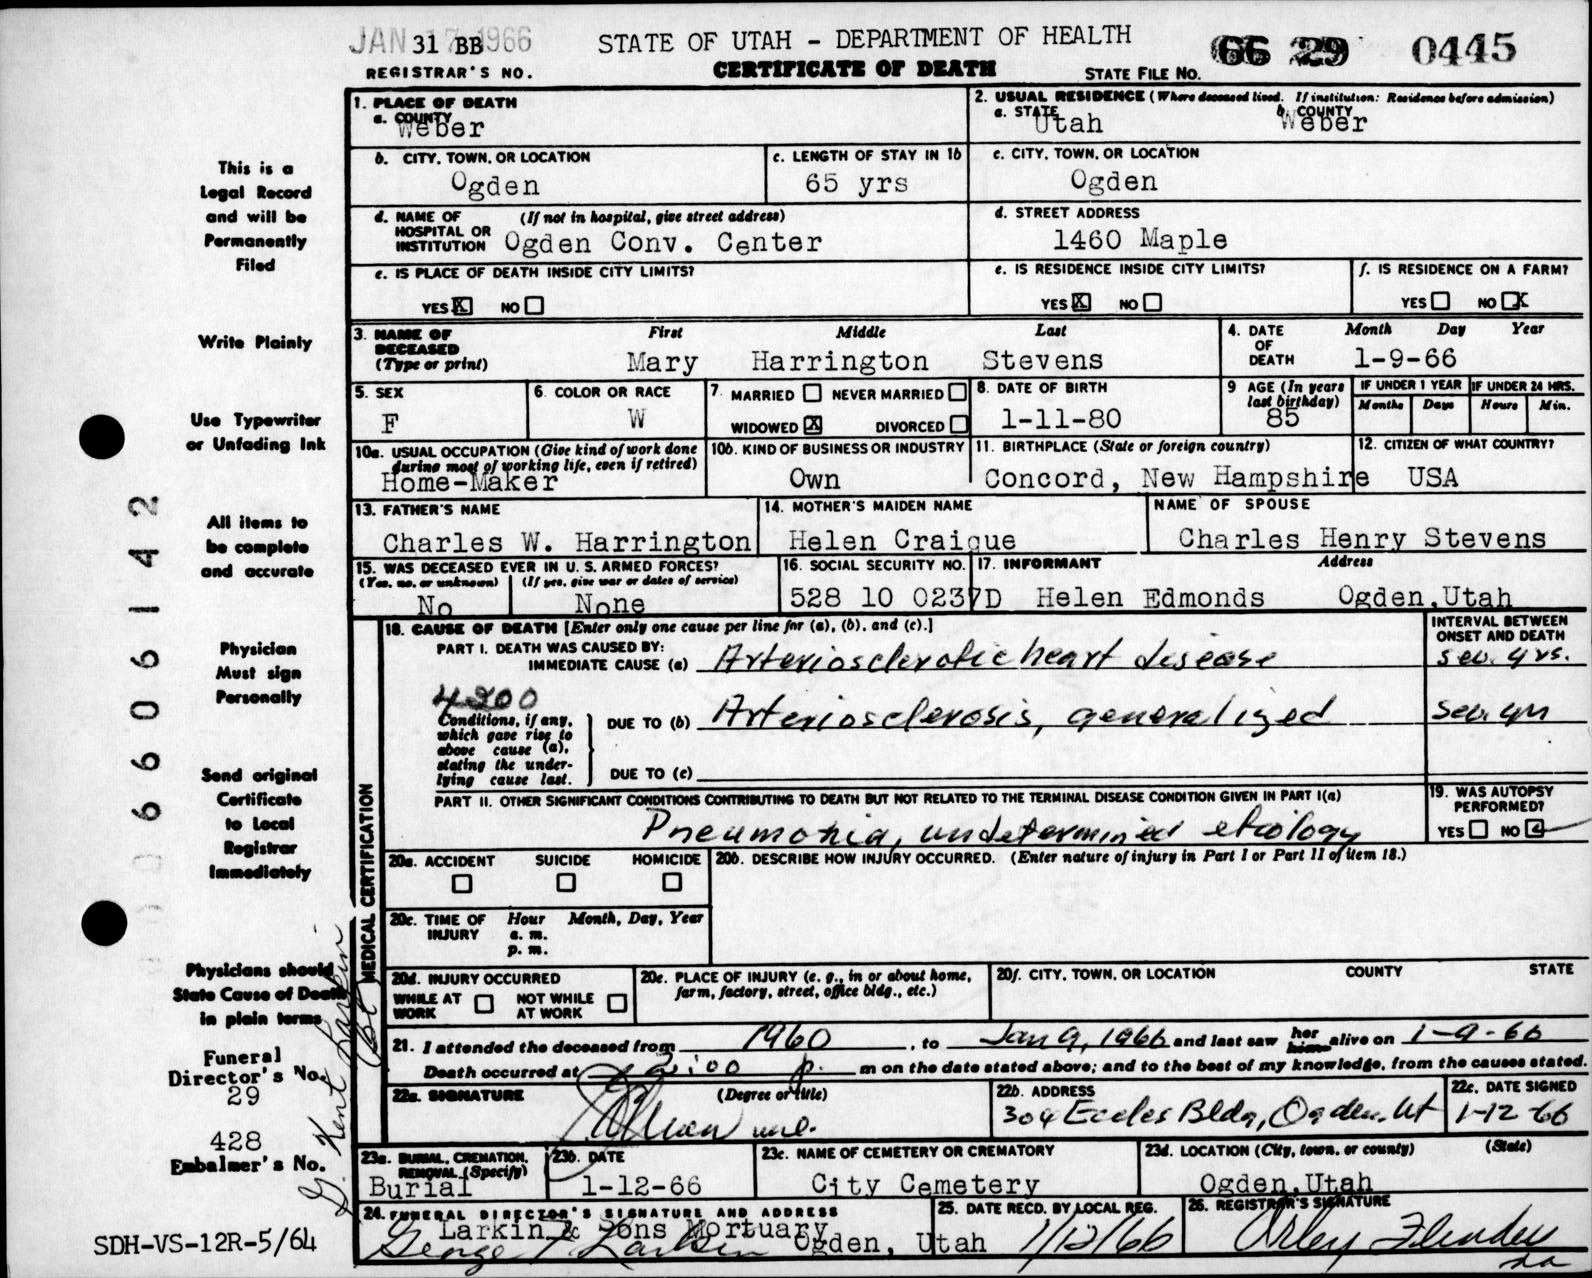 JAN 17 1966
31 BB
STATE OF UTAH - DEPARTMENT OF HEALTH
66 29 0445
REGISTRAR'S NO.
CERTIFICATE OF DEATH
STATE FILE NO.
1. PLACE OF DEATH
a. COUNTY
Weber
2. USUAL RESIDENCE (Where deceased lived. If institution: Residence before admission)
a. STATE
Utah
b. COUNTY
Weber
b. CITY, TOWN, OR LOCATION
Ogden
c. LENGTH OF STAY IN 1b
65 yrs
c. CITY, TOWN, OR LOCATION
Ogden
d. NAME OF HOSPITAL OR INSTITUTION
(If not in hospital, give street address)
Ogden Conv. Center
d. STREET ADDRESS
1460 Maple
e. IS PLACE OF DEATH INSIDE CITY LIMITS?
YES X NO
e. IS RESIDENCE INSIDE CITY LIMITS?
YES X NO
f. IS RESIDENCE ON A FARM?
YES NO X
3. NAME OF DECEASED (Type or print)
First Middle Last
Mary Harrington Stevens
4. DATE OF DEATH
Month Day Year
1-9-66
5. SEX
F
6. COLOR OR RACE
W
7. MARRIED NEVER MARRIED
WIDOWED X DIVORCED
8. DATE OF BIRTH
1-11-80
9 AGE (In years last birthday)
85
IF UNDER 1 YEAR
Months Days
IF UNDER 24 HRS.
Hours Min.
10a. USUAL OCCUPATION (Give kind of work done during most of working life, even if retired)
Home-Maker
10b. KIND OF BUSINESS OR INDUSTRY
Own
11. BIRTHPLACE (State or foreign country)
Concord, New Hampshire
12. CITIZEN OF WHAT COUNTRY?
USA
13. FATHER'S NAME
Charles W. Harrington
14. MOTHER'S MAIDEN NAME
Helen Craique
NAME OF SPOUSE
Charles Henry Stevens
15. WAS DECEASED EVER IN U. S. ARMED FORCES?
(Yes, no, or unknown) (If yes, give war or dates of service)
No None
16. SOCIAL SECURITY NO.
528 10 0237D
17. INFORMANT Address
Helen Edmonds Ogden, Utah
MEDICAL CERTIFICATION
18. CAUSE OF DEATH [Enter only one cause per line for (a), (b), and (c).]
INTERVAL BETWEEN ONSET AND DEATH
PART I. DEATH WAS CAUSED BY:
IMMEDIATE CAUSE (a) Arteriosclerotic heart disease sev. yrs.
4200
Conditions, if any, which gave rise to above cause (a), stating the underlying cause last.
DUE TO (b) Arteriosclerosis, generalized sev. yrs
DUE TO (c)
PART II. OTHER SIGNIFICANT CONDITIONS CONTRIBUTING TO DEATH BUT NOT RELATED TO THE TERMINAL DISEASE CONDITION GIVEN IN PART I(a)
Pneumonia, undetermined etiology
19. WAS AUTOPSY PERFORMED?
YES NO
20a. ACCIDENT SUICIDE HOMICIDE
20b. DESCRIBE HOW INJURY OCCURRED. (Enter nature of injury in Part I or Part II of item 18.)
20c. TIME OF INJURY
Hour Month, Day, Year
a. m.
p. m.
20d. INJURY OCCURRED
WHILE AT WORK NOT WHILE AT WORK
20e. PLACE OF INJURY (e. g., in or about home, farm, factory, street, office bldg., etc.)
20f. CITY, TOWN, OR LOCATION COUNTY STATE
21. I attended the deceased from 1960, to Jan 9, 1966 and last saw her him alive on 1-9-66
Death occurred at 2:00 p. m on the date stated above; and to the best of my knowledge, from the causes stated.
22a. SIGNATURE (Degree or title)
22b. ADDRESS
304 Eccles Bldg, Ogden, Ut
22c. DATE SIGNED
1-12-66
23a. BURIAL, CREMATION, REMOVAL (Specify)
Burial
23b. DATE
1-12-66
23c. NAME OF CEMETERY OR CREMATORY
City Cemetery
23d. LOCATION (City, town, or county) (State)
Ogden, Utah
24. FUNERAL DIRECTOR'S SIGNATURE AND ADDRESS
Larkin & Sons Mortuary
George F Larkin
Ogden, Utah
25. DATE RECD. BY LOCAL REG.
1/12/66
26. REGISTRAR'S SIGNATURE
This is a
Legal Record
and will be
Permanently
Filed
Write Plainly
Use Typewriter
or Unfading Ink
All items to
be complete
and accurate
Physician
Must sign
Personally
Send original
Certificate
to Local
Registrar
Immediately
Physicians should
State Cause of Death
in plain terms
Funeral
Director's No.
29
428
Embalmer's No.
G. Kent Larkin
SDH-VS-12R-5/64
66 06142